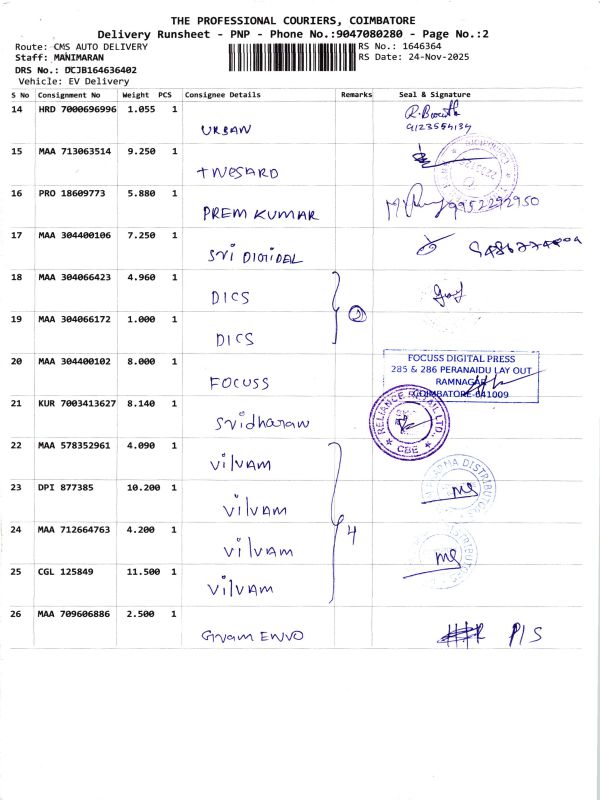 THE PROFESSIONAL COURIERS, COIMBATORE
Delivery Runsheet - PNP - Phone No.:9047080280 - Page No.:2
Route: CMS AUTO DELIVERY RS No.: 1646364
Staff: MANIMARAN RS Date: 24-Nov-2025
DRS No.: DCJB164636402
Vehicle: EV Delivery
S No Consignment No Weight PCS Consignee Details Remarks Seal & Signature
14 HRD 7000696996 1.055 1
URBAN
15 MAA 713063514 9.250 1
16 PRO 18609773 5.880 1
PREM KUMAR 9952292950
17 MAA 304400106 7.250 1
Sri DIGIDEL
18 MAA 304066423 4.960 1
DICS
19 MAA 304066172 1.000 1
DICS
20 MAA 304400102 8.000 1
FOCUSS
FOCUSS DIGITAL PRESS
285 & 286 PERANAIDU LAY OUT
RAMNAGAR
COIMBATORE-641009
21 KUR 7003413627 8.140 1
Sridharan
RELIANCE RETAIL LTD.,
CBE
22 MAA 578352961 4.090 1
VilVAM
23 DPI 877385 10.200 1
VilVAM
24 MAA 712664763 4.200 1
VilVAM 4
25 CGL 125849 11.500 1
VilVAM
26 MAA 709606886 2.500 1
P/S